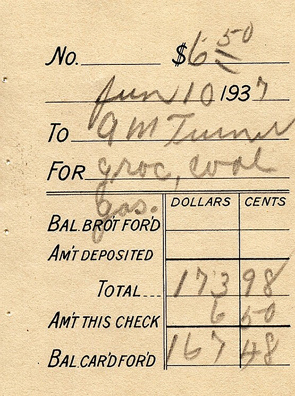 No. $6 50
Jun 10 1937
To A M Turner
For groc, coal
gas.
DOLLARS CENTS
BAL. BRO'T FOR'D
AM'T DEPOSITED
TOTAL.... 173 98
AM'T THIS CHECK 6 50
BAL. CAR'D FOR'D 167 48